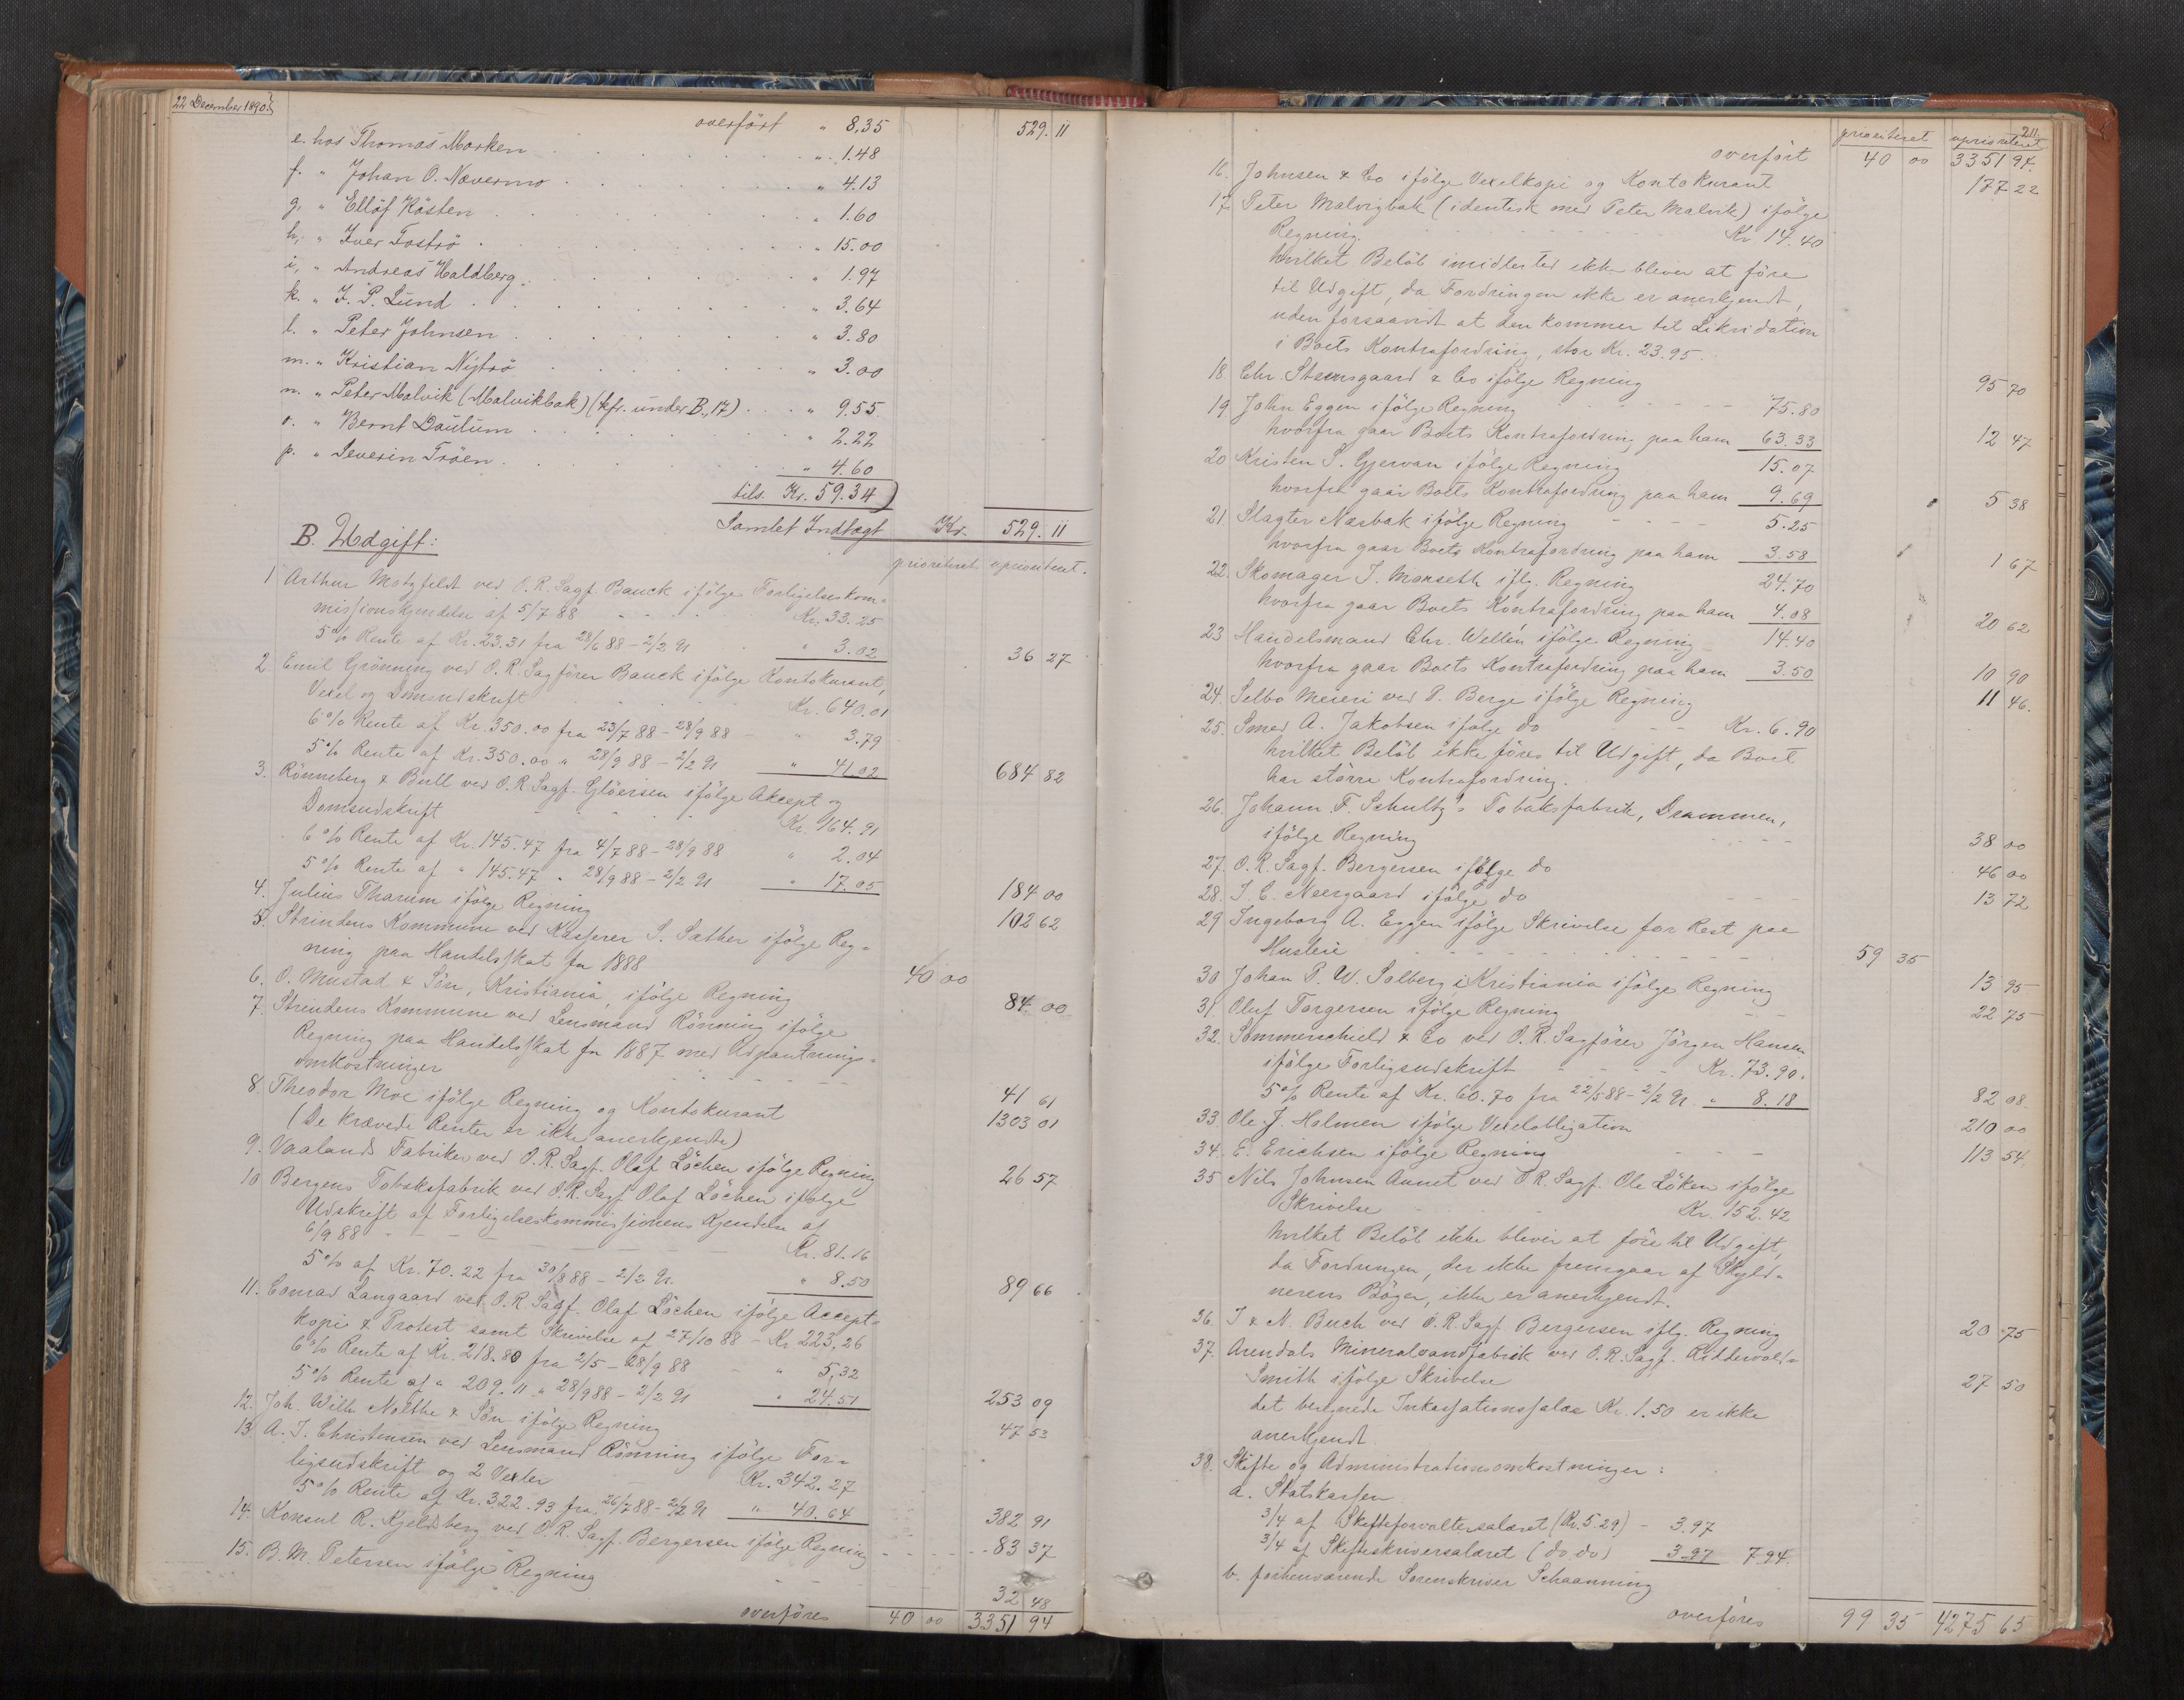 22 December 1890.
overført " 8,35 529.11
e. hos Thomas Marken " 1.48
f. " Johan O. Nævermo " 4.13
g, " Ellöf Kösten " 1.60
h, " Iver Fosträ " 15.00
i, " Andreas Haldberg " 1.97
k. " J. P. Lund " 3.64
l. " Peter Johnsen " 3.80
m. " Kristian Nytrö " 3.00
n. " Peter Malvik (Malvikbak) (kfr. under B, 17) " 9.55
o. " Bernt Daulum " 2.22
p. " Severin Tröen " 4.60
tils. Kr. 59.34)
Samlet Indtægt Kr. 529.11
B. Udgift:
prioriteret uprioriteret.
1 Arthur Motzfeldt ved O.R. Sagf. Bauck ifølge Forligelseskom-
missionskjendelse af 5/7 88 Kr. 33.25
5% Rente af Kr. 23.31 fra 28/6 88 - 2/2 91 " 3.02 36 27
2. Emil Grönning ved O.R. Sagfører Bauck ifølge Kontokurant,
Vexel og Domsudskrift Kr. 640.01
6% Rente af Kr. 350.00 fra 23/7 88 - 28/9 88 " 3.79
5% Rente af Kr. 350.00 " 28/9 88 - 2/2 91 " 41.02 684 82
3. Rönneberg & Bull ved O.R. Sagf. Glöersen ifølge Akcept og
Domsudskrift Kr. 164.91
6% Rente af Kr. 145.47 fra 4/7 88 - 28/9 88 " 2.04
5% Rente af " 145.47 " 28/9 88 - 2/2 91 " 17.05 184 00
4. Julius Tharum ifølge Regning 102 62
5. Strindens Kommune ved Kasserer S. Sæther ifølge Reg-
ning paa Handelsskat for 1888 40 00
6. O. Mustad & Sön, Kristiania, ifølge Regning 84 00
7. Strindens Kommune ved Lensmand Rönning ifølge
Regning paa Handelsskat for 1887 med Udpantnings-
omkostninger 41 61
8. Theodor Moe ifølge Regning og Kontokurant 1303 01
(De krævede Renter er ikke anerkjendte)
9. Vaalands Fabriker ved O.R. Sagf. Olaf Löchen ifølge Regning 26 57
10 Bergens Tobaksfabrik ved O.R. Sagf. Olaf Löchen ifølge
Udskrift af Forligelseskommissionens Kjendelse af
6/9 88 Kr. 81.16
5% af Kr. 70.22 fra 30/8 88 - 2/2 91. " 8.50 89 66
11. Conrad Langaard ved O.R. Sagf. Olaf Löchen ifølge Accept-
kopi & Protest samt Skrivelse af 27/10 88 - Kr. 223,26
6% Rente af Kr. 218.80 fra 2/5 - 28/9 88 " 5,32
5% Rente af " 209.11 " 28/9 88 - 2/2 91 " 24.51 253 09
12. Joh. Wilh. Nolthe & Sön ifølge Regning 47 53
13. A. J. Christensen ved Lensmand Rönning ifølge For-
ligsudskrift og 2 Vexler Kr. 342.27
5% Rente af Kr. 322.93 fra 26/7 88 - 2/2 91 " 40.64 382 91
14. Konsul R. Kjeldsberg ved O.R. Sagf. Bergersen ifølge Regning 83 37
15. B. M. Petersen ifølge Regning 32 48
overføres 40 00 3351 94
211.
prioriteret uprioriteret
overført 40 00 3351 94.
16. Johnsen & Co ifølge Vexelkopi og Kontokurant 177 22
17. Peter Malvigbak (identisk med Peter Malvik) ifølge
Regning. Kr. 14.40
hvilket Beløb imidlertid ikke bliver at føre
til Udgift, da Fordringen ikke er anerkjendt,
uden forsaavidt at den kommer til Likvidation
i Boets Kontrafordring, stor Kr. 23.95.
18. Chr. Steensgaard & Co ifølge Regning 95 70
19 John Eggen ifølge Regning 75.80
hvorfra gaar Boets Kontrafordring paa ham 63.33 12 47
20 Kristen S. Gjervan ifølge Regning 15.07
hvorfra gaar Boets Kontrafordring paa ham 9.69 5 38
21 Slagter Næsbak ifølge Regning 5.25
hvorfra gaar Boets Kontrafordring paa ham 3.58 1 67
22. Skomager J. Monseth iflg. Regning 24.70
hvorfra gaar Boets Kontrafordring paa ham 4.08 20 62
23 Handelsmand Chr. Wellén ifølge Regning 14.40
hvorfra gaar Boets Kontrafordring paa ham 3.50 10 90
24. Selbo Meieri ved P. Berge ifølge Regning 11 46.
25. Smed A. Jakobsen ifølge do Kr. 6.90
hvilket Beløb ikke føres til Udgift, da Boet
har større Kontrafordring.
26. Johann F. Schultz's Tobaksfabrik, Drammen,
ifølge Regning 38 00
27. O.R. Sagf. Bergersen ifølge do 46 00
28. I. C. Neergaard ifølge do 13 72
29 Ingeborg A. Eggen ifølge Skrivelse for Rest paa
Husleie 59 35
30 Johan P. W. Solberg i Kristiania ifølge Regning 13 95
31 Oluf Torgersen ifølge Regning 22 75
32. Sommerschield & Co ved O.R. Sagfører Jörgen Hansen
ifølge Forligsudskrift Kr. 73.90.
5% Rente af Kr. 60.70 fra 22/5 88 - 2/2 91. " 8.18 82 08
33. Ole J. Holmen ifølge Vexelobligation 210 00
34. E. Erichsen ifølge Regning 113 54
35 Nils Johnsen Aunet ved O.R. Sagf. Ole Löken ifølge
Skrivelse Kr. 152.42
hvilket Beløb ikke bliver at føre til Udgift,
da Fordringen, der ikke fremgaar af Skyld-
nerens Bøger, ikke er anerkjendt.
36. I & N. Buch ved O.R. Sagf. Bergersen iflg. Regning 20 75
37. Arendals Mineralvandfabrik ved O.R. Sagf. Riddervold
Smith ifølge Skrivelse 27 50
det beregnede Inkassationssalær Kr. 1.50 er ikke
anerkjendt.
38. Skifte og Administrationsomkostninger:
a. Statskassen
3/4 af Skifteforvaltersalæret (Kr. 5.29) - 3.97
3/4 af Skifteskriversalæret (do. do) 3.97 7.94
b. forhenværende Sorenskriver Schaanning
overføres 99 35 4275 65